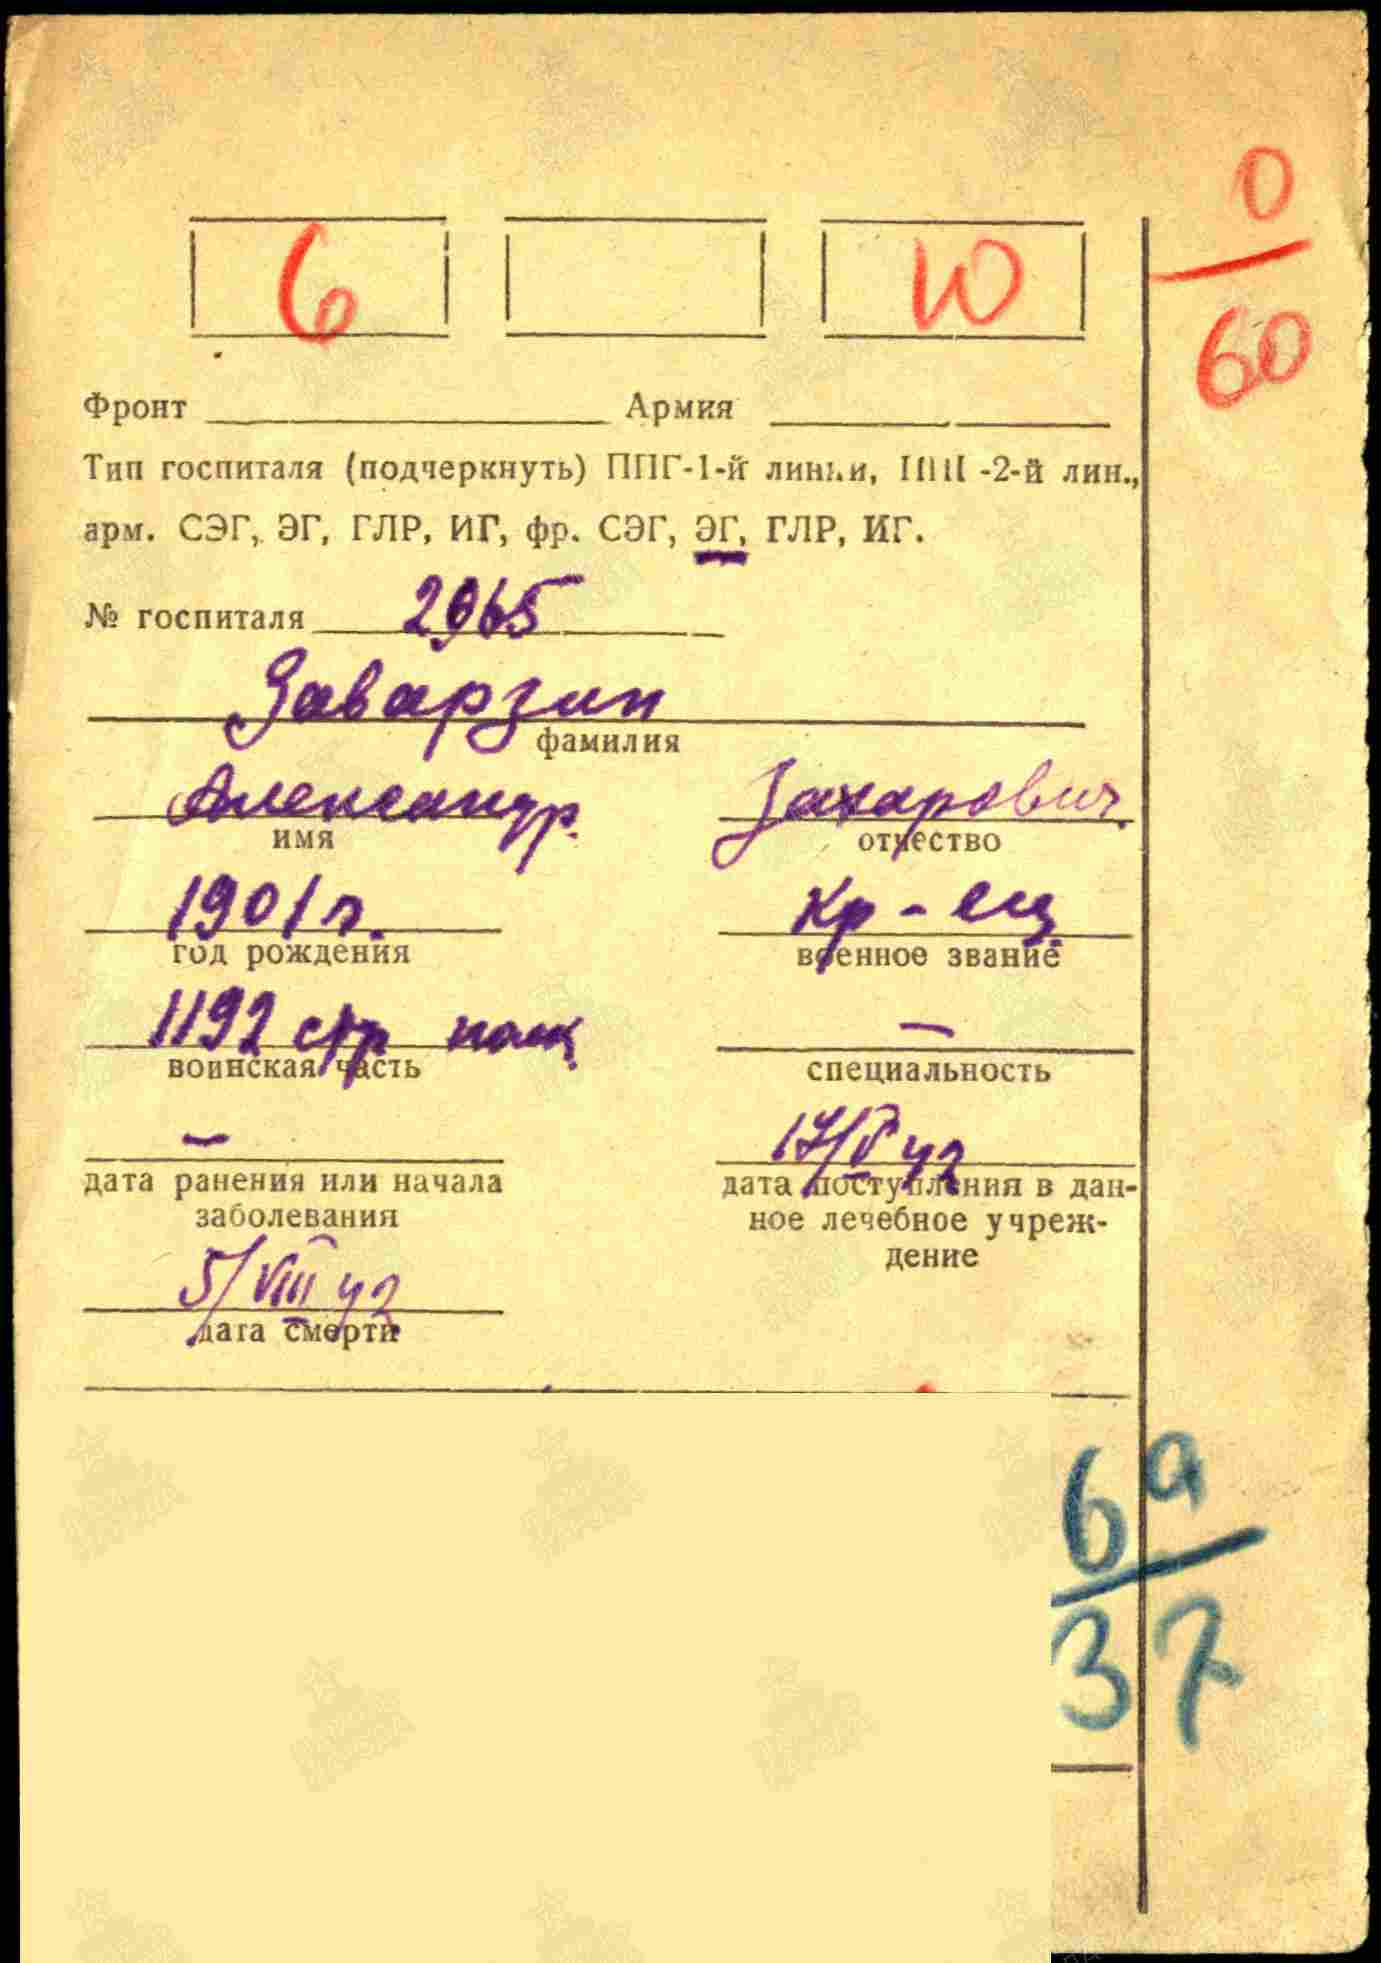 0
6 10
60
Фронт Армия
Тип госпиталя (подчеркнуть) ППГ-1-й линии, ППГ-2-й лин.,
арм. СЭГ, ЭГ, ГЛР, ИГ, фр. СЭГ, ЭГ, ГЛР, ИГ.
№ госпиталя 2965
Заварзин
фамилия
Александр. Захарович.
имя отчество
1901 г. кр-ец
год рождения военное звание
1192 стр полк –
воинская часть специальность
– 17/V 42
дата ранения или начала дата поступления в дан-
заболевания ное лечебное учреж-
дение
5/VIII 42
дата смерти
6а
37